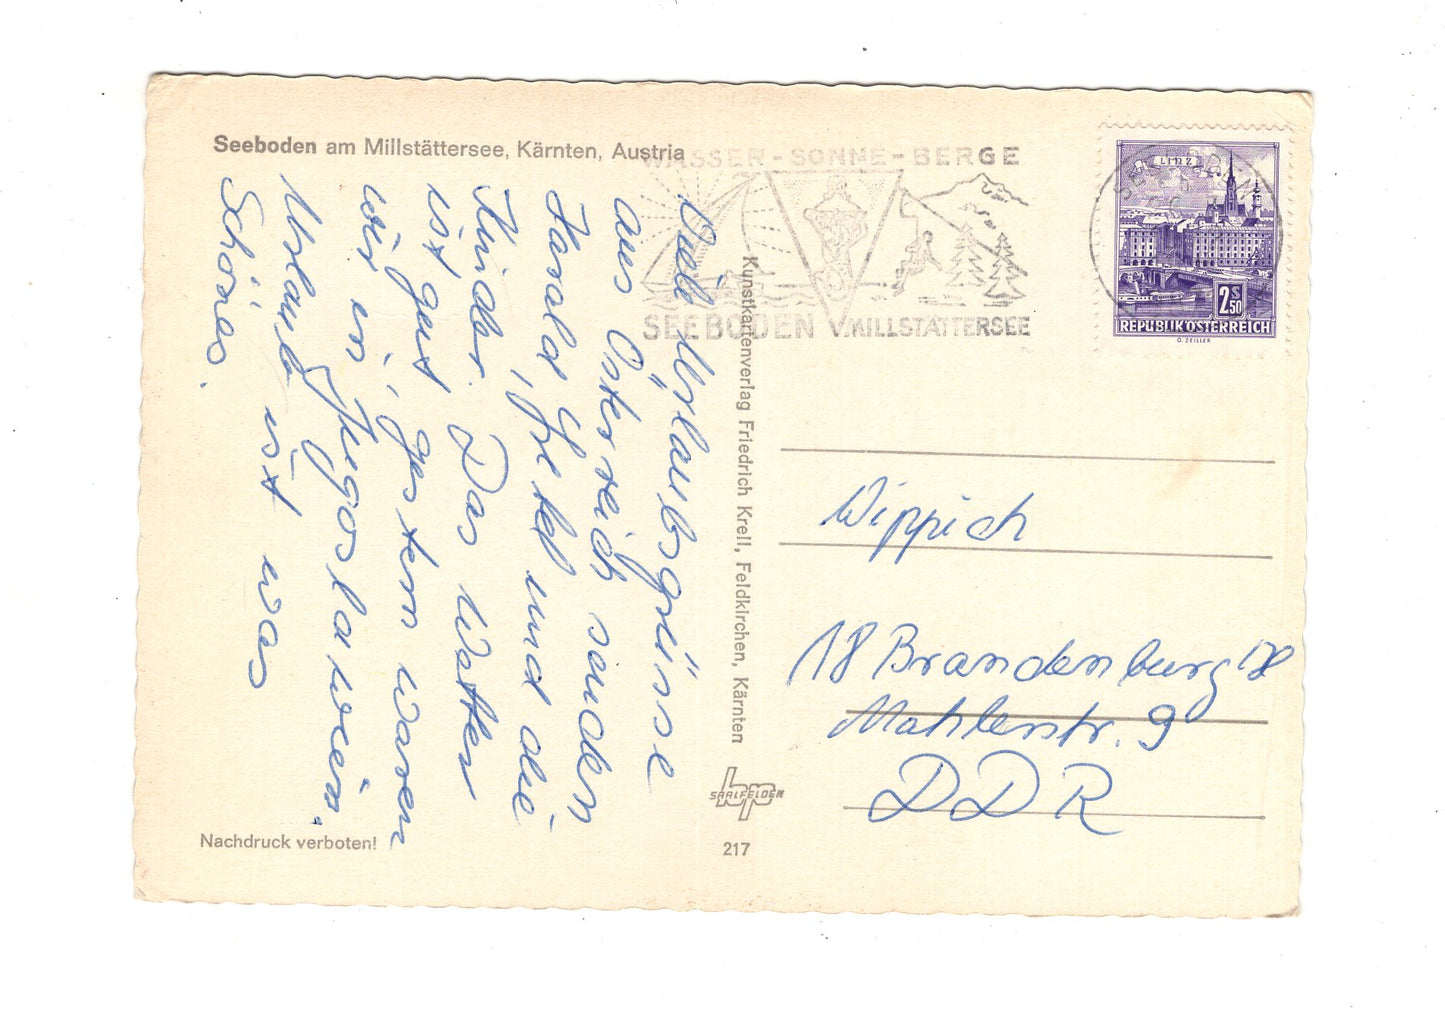 Seeboden am Millstättersee, Kärnten, Austria
WASSER - SONNE - BERGE
SEEBODEN MILLSTÄTTERSEE
LINZ
2 S 50
REPUBLIK ÖSTERREICH
O. ZEILLER
Viele Urlaubsgrüsse
aus Österreich senden
Harald, und die
Kinder. Das Wetter
ist gut, gestern waren
wir in Jugoslawien.
Urlaub ist was
Schönes.
Kunstkartenverlag Friedrich Krell, Feldkirchen, Kärnten
Wippich
18 Brandenburg
Mahlerstr. 9
DDR
hp
SAALFELDEN
217
Nachdruck verboten!